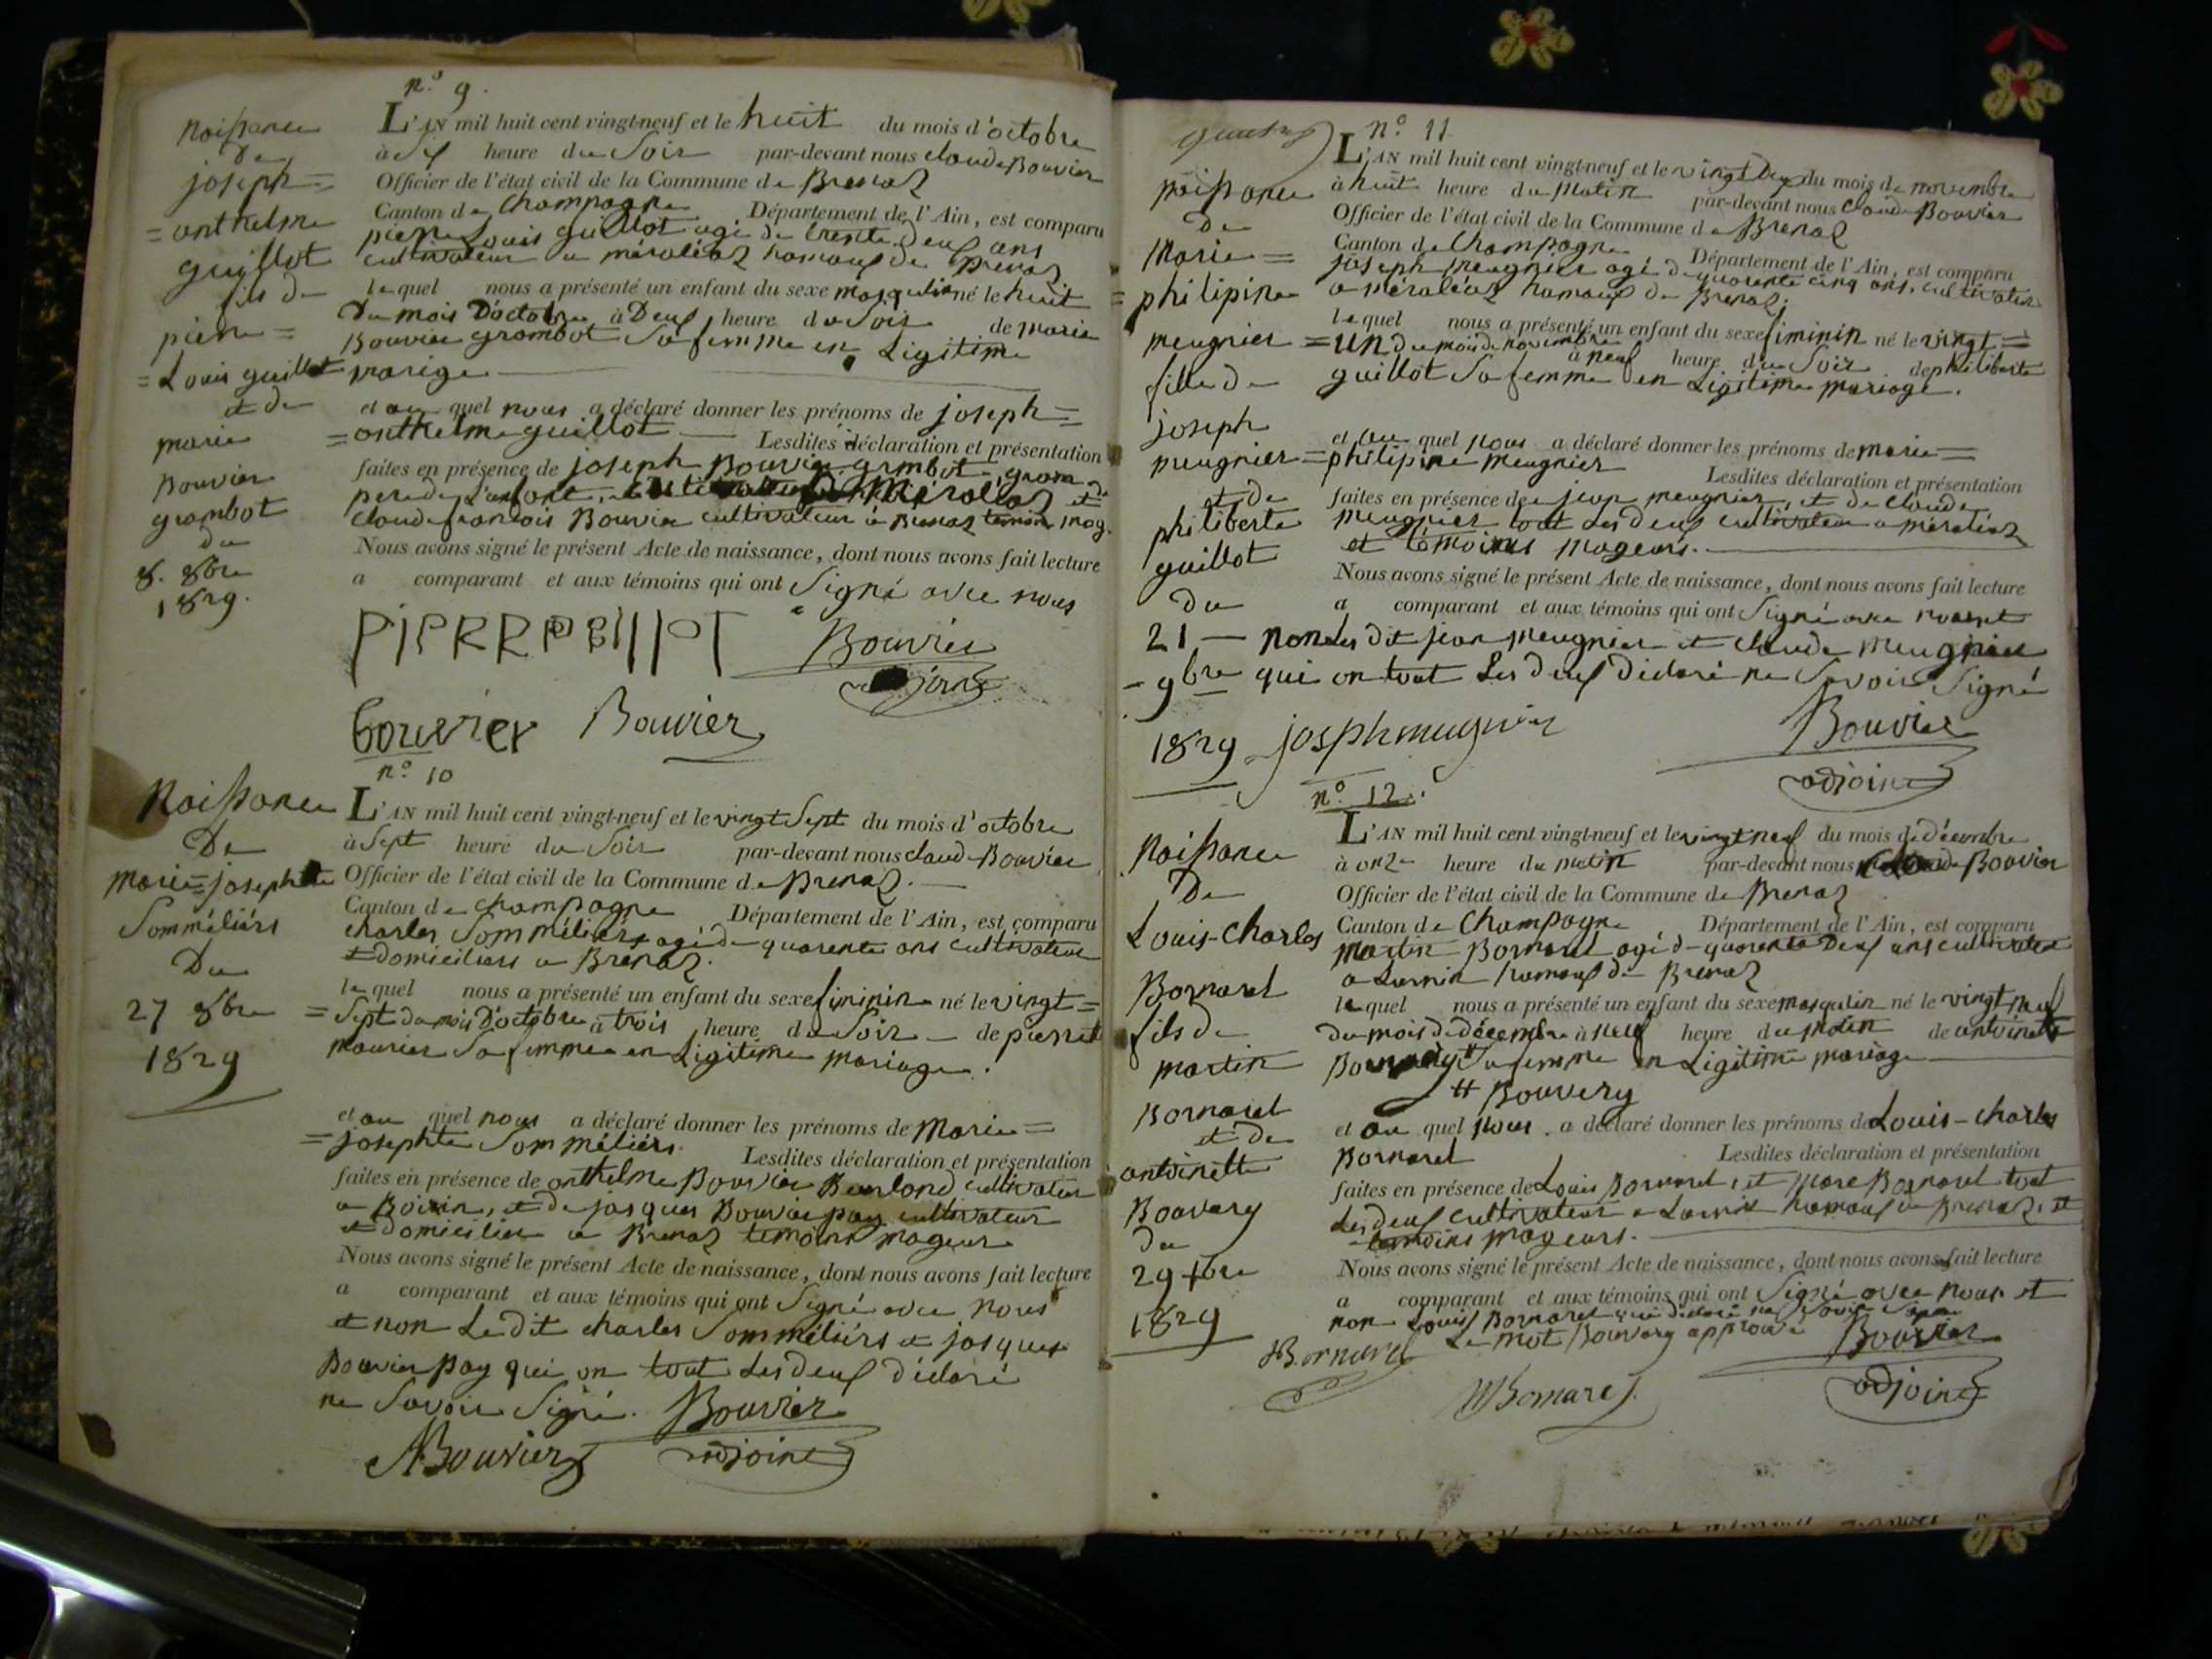 n.º 9.
Naissance
De
joseph=
=anthelme
guillot
fils de
pierre=
=Louis guillot
et de
marie
Bouvier
grambot
du
8. 8bre
1829.
L'AN mil huit cent vingt-neuf et le huit du mois d'octobre
à Six heure du Soir par-devant nous claude Bouvier
Officier de l'état civil de la Commune de Brenaz
Canton de Champagne Département de l'Ain, est comparu
pierre Louis guillot agé de trente deux ans
cultivateur a méraléaz hamaux de Brenaz
lequel nous a présenté un enfant du sexe masqulin né le huit
Du mois D'octobre à Deux heure du Soir de marie
Bouvier grambot Sa femme en Ligitime
marige
et au quel nous a déclaré donner les prénoms de joseph=
=anthelme guillot Lesdites déclaration et présentation
faites en présence de joseph Bouvier grambot, gran
pere de L'enfant, Mérallaz et
claude francois Bouvier cultivateur à Brenaz temoin mag.
Nous avons signé le présent Acte de naissance, dont nous avons fait lecture
a comparant et aux témoins qui ont Signé avec nous
Bouvier
adjoint
bouvier Bouvier
n.º 10
Naissance
De
marie=josephte
Somméliérs
Du
27 8bre
1829
L'AN mil huit cent vingt-neuf et le vingt Sept du mois d'octobre
à Sept heure du Soir par-devant nous claude Bouvier
Officier de l'état civil de la Commune de Brenaz.
Canton de champagne Département de l'Ain, est comparu
charles Somméliers agé de quarente ans cultivateur
et domiciliers a Brenaz.
lequel nous a présenté un enfant du sexe fiminin né le vingt=
=Sept du mois D'octobre à trois heure du Soir de pierret
mourier Sa femme en Ligitime mariage.
et au quel nous a déclaré donner les prénoms de Marie=
=josephte Somméliérs. Lesdites déclaration et présentation
faites en présence de anthelme Bouvier Burland cultivateur
a Boirin, et de jasques Bouvier pay cultivateur
et domicilier a Brenaz temoint mageur
Nous avons signé le présent Acte de naissance, dont nous avons fait lecture
a comparant et aux témoins qui ont Signé avec nous
et non Le dit charles Somméliérs et jasques
Bouvier pay qui on tout Les deux déclaré
ne Savoir Signé. Bouvier
ABouvier adjoint
n.º 11
naissance
de
Marie=
=philipine
meugnier
fille de
joseph
meugnier
et de
philiberte
guillot
du
21
9bre
1829
L'AN mil huit cent vingt-neuf et le vingt Deux du mois de novembre
à huit heure du Matin par-devant nous Claude Bouvier
Officier de l'état civil de la Commune de Brenaz
Canton de Champagne Département de l'Ain, est comparu
joseph meugnier agé de quarente cinq ans, cultivateur
a méraléaz hamaux de Brenaz.
lequel nous a présenté un enfant du sexe fiminin né le vingt=
=un du mois de novembre à neuf heure du Soir de philiberte
guillot Sa femme en Ligitime mariage.
et au quel nous a déclaré donner les prénoms de marie=
=philipine meugnier Lesdites déclaration et présentation
faites en présence de jean meugnier, et de claude
meugnier tout Les deux cultivateur a méraléaz
et témoines mageurs.
Nous avons signé le présent Acte de naissance, dont nous avons fait lecture
a comparant et aux témoins qui ont Signé avec nous et
non Les dit jean meugnier et claude meugnier
qui on tout Les deux déclaré ne Savoir Signé
josphmeugnier Bouvier
adjoint
n.º 12.
Naissance
De
Louis-Charles
Bornarel
fils de
martin
Bornarel
et de
antoinette
Bouvery
du
29 Xbre
1829
L'AN mil huit cent vingt-neuf et le vingt neuf du mois de décembre
à onze heure du matin par-devant nous Claude Bouvier
Officier de l'état civil de la Commune de Brenaz
Canton de Champagne Département de l'Ain, est comparu
martin Bornarel agé de quarente Deux ans cultivateur
a Lornin hamaux de Brenaz
lequel nous a présenté un enfant du sexe masqulin né le vingt neuf
du mois de décembre à neuf heure du matin de antoinette
Sa femme en Ligitime mariage
# Bouvery
et au quel nous a déclaré donner les prénoms de Louis-charles
Bornarel Lesdites déclaration et présentation
faites en présence de Louis Bornarel, et Marc Bornarel tout
Les deux cultivateur a Lornin hamaux de Brenaz, et
témoins mageurs.
Nous avons signé le présent Acte de naissance, dont nous avons fait lecture
a comparant et aux témoins qui ont Signé avec nous et
non Louis Bornarel qui déclaré ne Savoir Signé
Le mot Bouvery approuvé Bouvier
Bornarel MBornarel adjoint